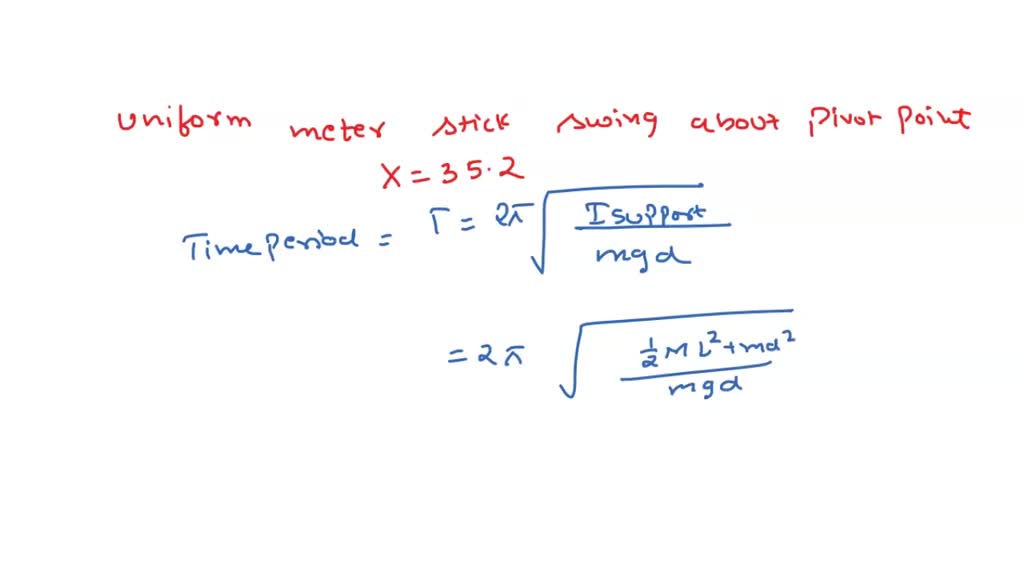 uniform meter stick swing about pivot point
X = 35.2
Time period = T = 2π √ I support / mgd
= 2π √ 1/2 M L² + md² / mgd